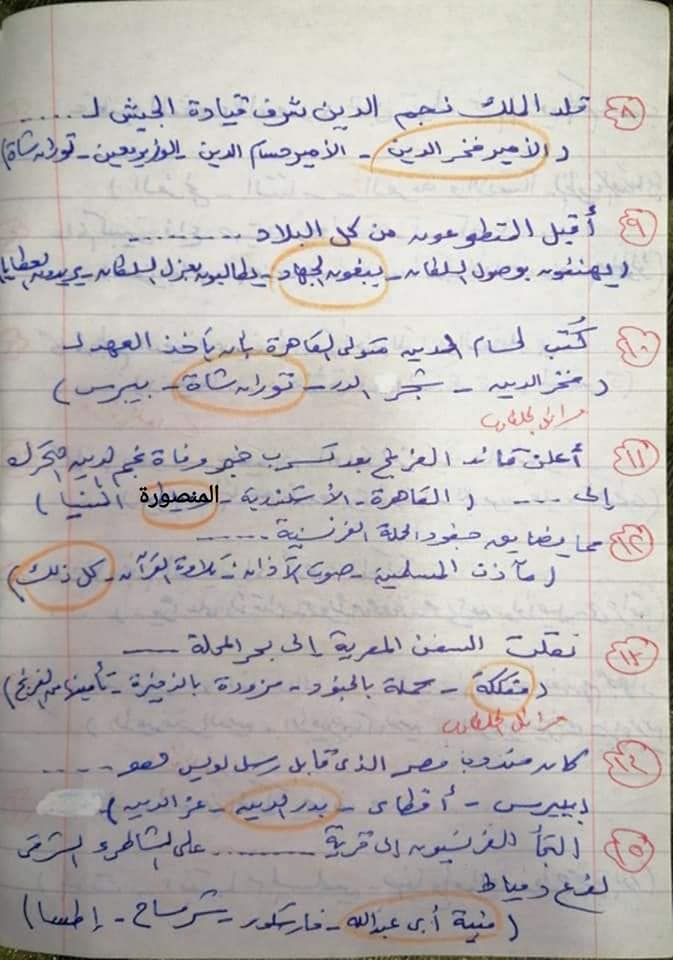 ٨ قلد الملك نجم الدين شرف قيادة الجيش لـ .....
( الأمير فخر الدين - الأمير حسام الدين - الوزير معين - توران شاة )
٩ أقبل المتطوعون من كل البلاد ........
( يهنئون بوصول السلطان - يبغون الجهاد - يطالبون بعزل السلطان - يريدون العطايا
١٠ كُتب لحسام الدين متولى القاهرة بأن يأخذ العهد لـ
( فخر الدين - شجر الدر - توران شاة - بيبرس )
١١ أعلن قائد الفرنج بعد تسرب خبر وفاة نجم الدين التحرك
إلى .... ( القاهرة - الأسكندرية - المنصورة - المنيا )
١٢ مما يضايق جنود الحملة الفرنسية ......
( مآذن المسلمين - صوت الآذان - تلاوة القرآن - كل ذلك )
١٣ نقلت السفن المصرية إلى بحر المحلة ....
( مفككة - محملة بالجنود - مزودة بالذخيرة - تأمينها من الفرنج )
١٤ كان مندوب مصر الذى قابل رسل لويس هو .....
( بيبرس - أقطاى - بدر الدين - عز الدين )
١٥ التجأ الفرنسيون إلى قرية ........ على الشاطئ الشرقى
لفرع دمياط
( منية أبى عبدالله - فارسكور - شرمساح - إطسا )